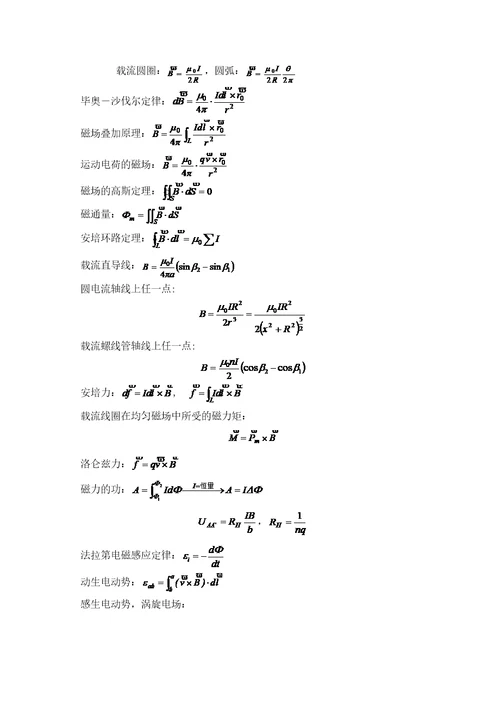 载流圆圈：B⃗ = μ₀I / 2R ，圆弧：B⃗ = μ₀I / 2R · θ / 2π
毕奥－沙伐尔定律：dB⃗ = μ₀ / 4π · Idl⃗ × r⃗₀ / r²
磁场叠加原理：B⃗ = μ₀ / 4π ∫_L Idl⃗ × r⃗₀ / r²
运动电荷的磁场：B⃗ = μ₀ / 4π · qv⃗ × r⃗₀ / r²
磁场的高斯定理：∯_S B⃗ · dS⃗ = 0
磁通量：Φₘ = ∬_S B⃗ · dS⃗
安培环路定理：∮_L B⃗ · dl⃗ = μ₀ ∑ I
载流直导线：B = μ₀I / 4πa (sin β₂ − sin β₁)
圆电流轴线上任一点:
B = μ₀IR² / 2r³ = μ₀IR² / 2(x² + R²)^(3/2)
载流螺线管轴线上任一点:
B = μ₀nI / 2 (cos β₂ − cos β₁)
安培力：df⃗ = Idl⃗ × B⃗， f⃗ = ∫_L Idl⃗ × B⃗
载流线圈在均匀磁场中所受的磁力矩：
M⃗ = P⃗ₘ × B⃗
洛仑兹力：f⃗ = qv⃗ × B⃗
磁力的功：A = ∫_Φ₁^Φ₂ IdΦ —I=恒量→ A = IΔΦ
R_H IB / b ， R_H = 1 / nq
法拉第电磁感应定律：εᵢ = − dΦ / dt
动生电动势：ε = ∫ (v⃗ × B⃗) · dl⃗
感生电动势，涡旋电场：